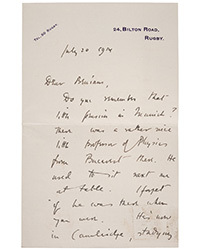 TEL. 66 RUGBY.
24, BILTON ROAD,
RUGBY.
July 20 1914
Dear Miss
Do you remember that
little pension in Munich?
There was a rather nice
little Professor of Physics
from Bucarest there. He
used to sit next me
at table. I forget
if he was there when
you were. He's now
in Cambridge, studying